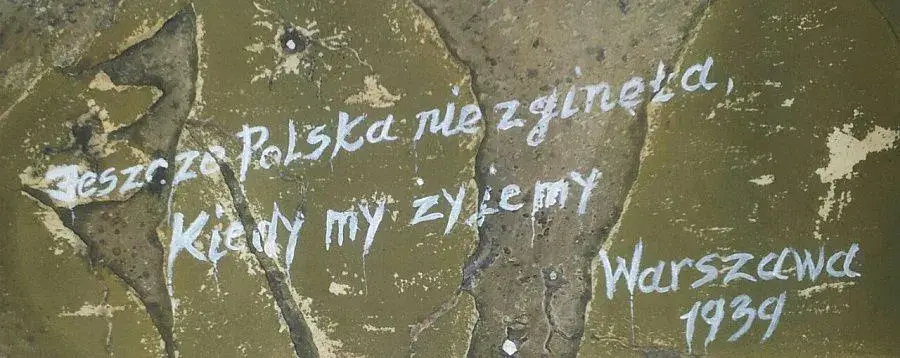 Jeszcze Polska nie zginęła,
Kiedy my żyjemy
Warszawa
1939